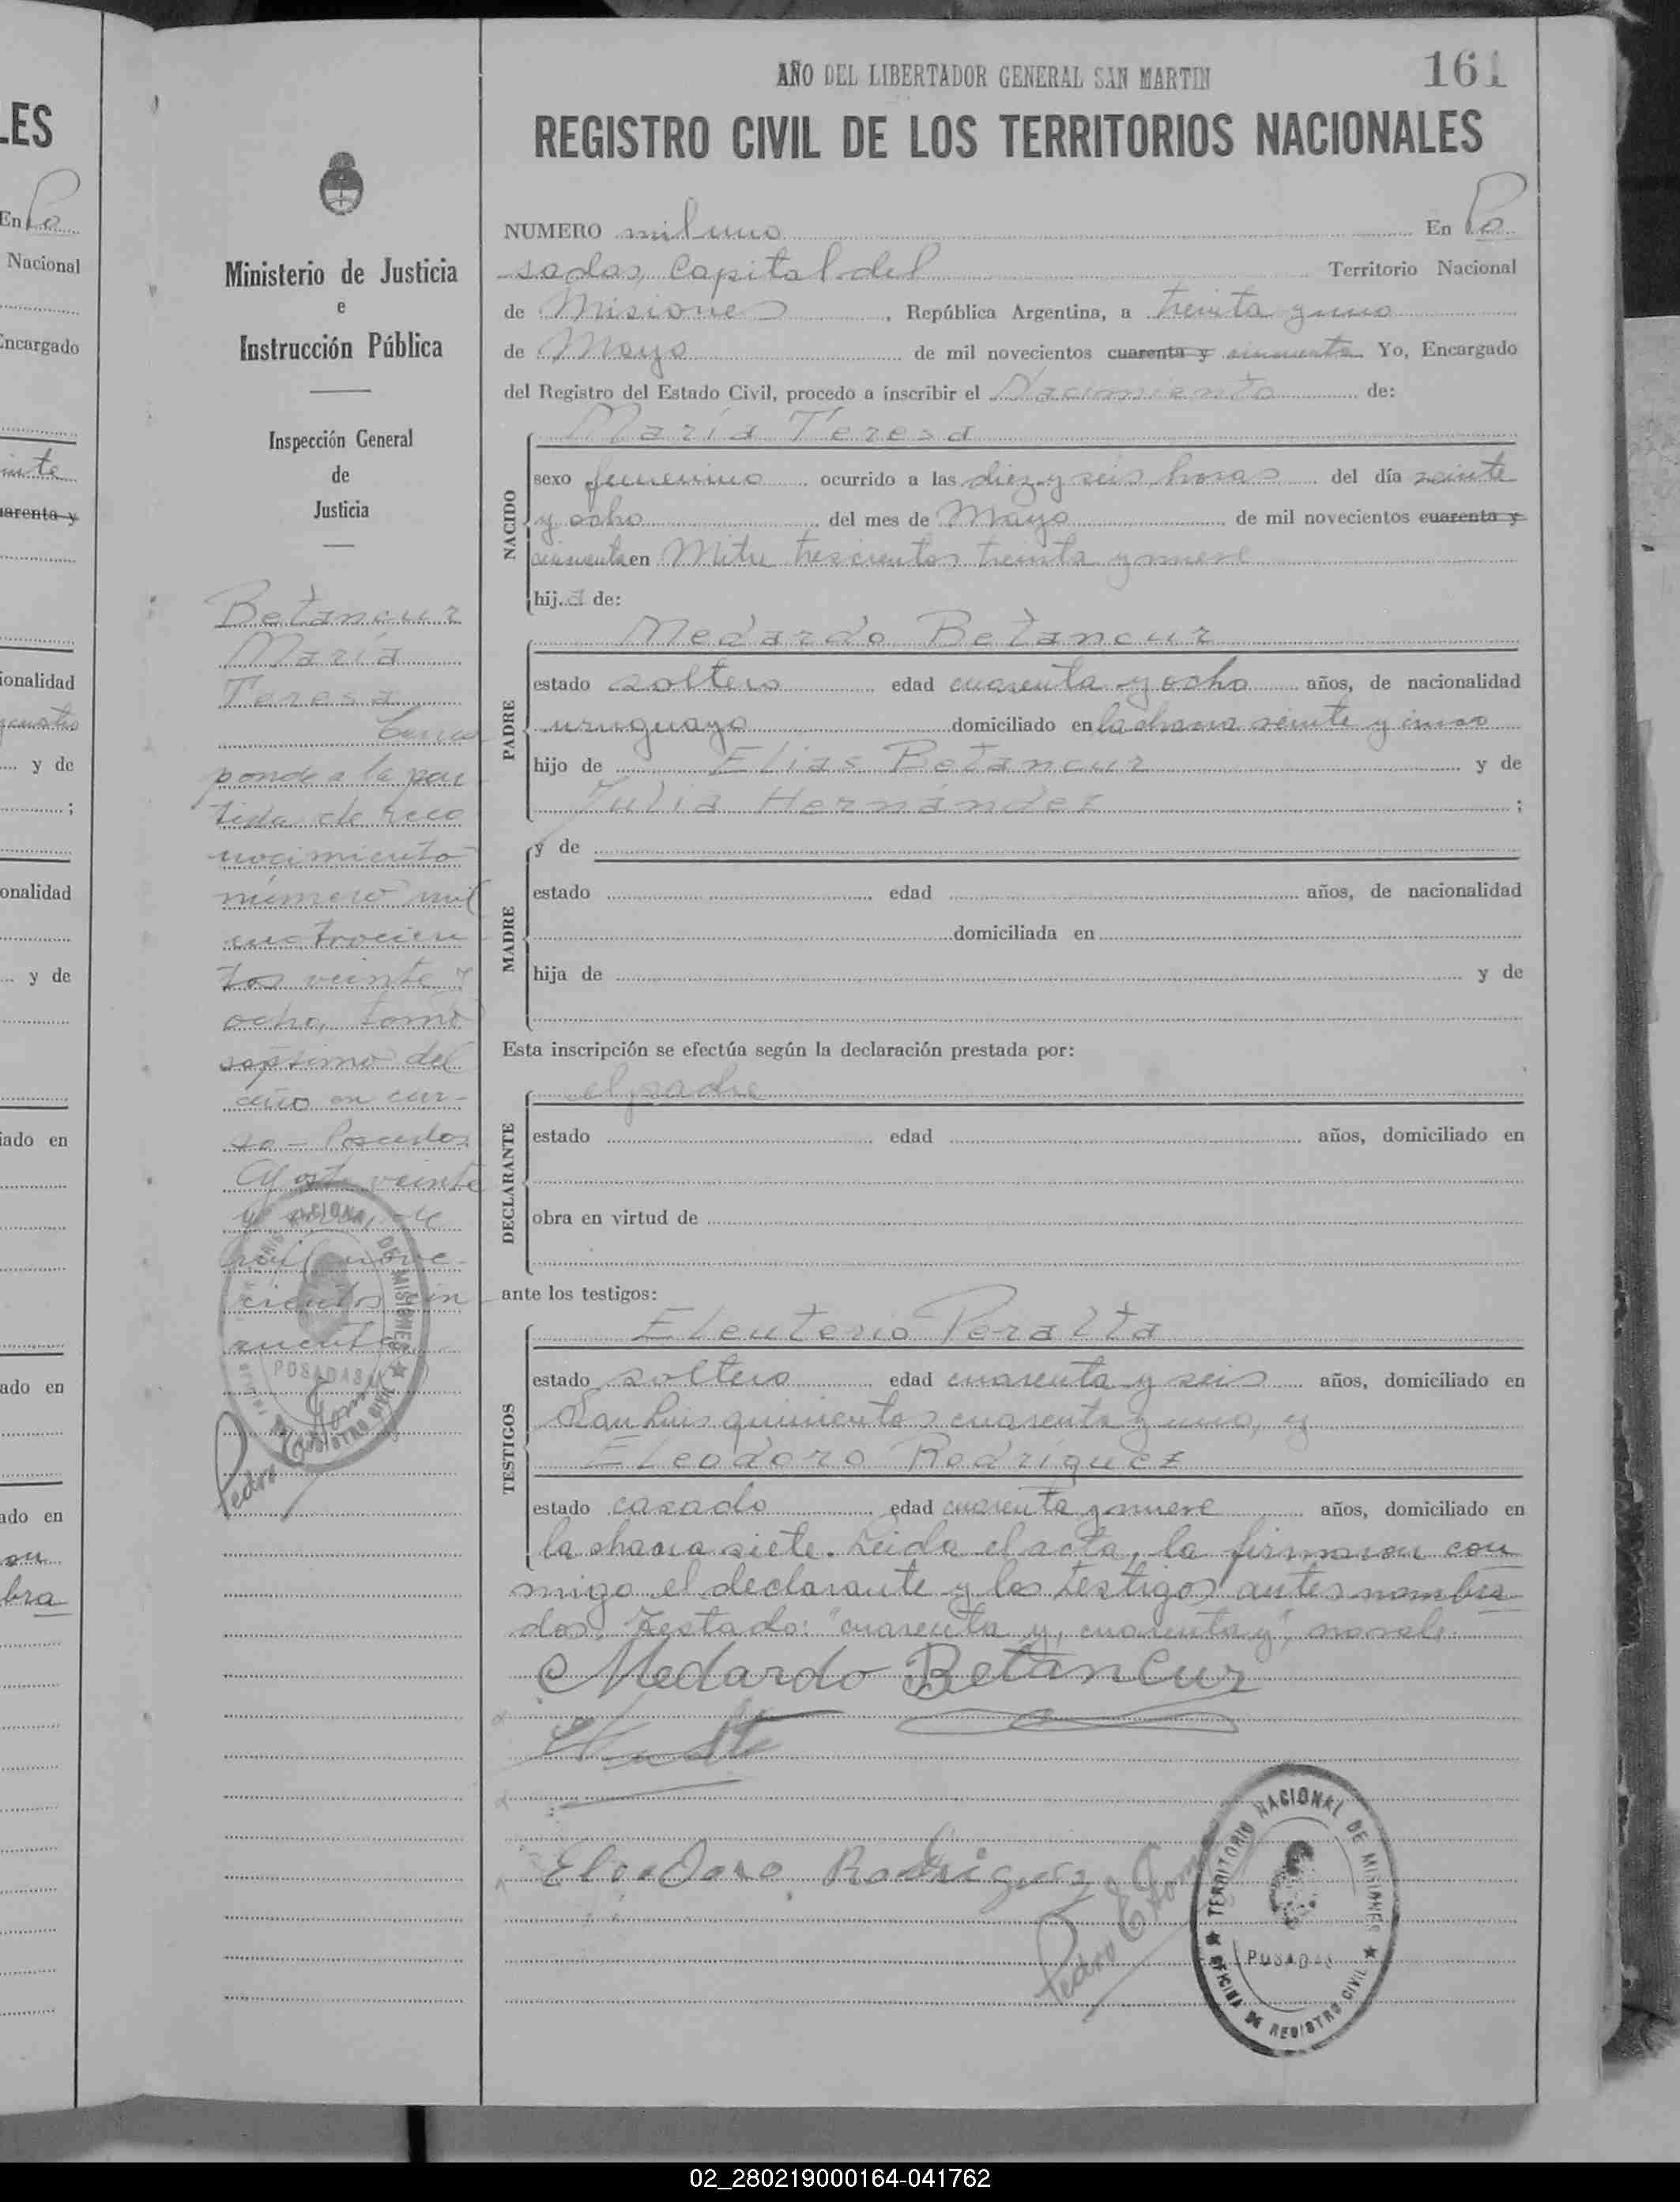 LES
En Po
Nacional
Encargado
inte
uarenta y
ionalidad
y cuatro
y de
;
onalidad
y de
iado en
ado en
ado en
bra
Ministerio de Justicia
e
Instrucción Pública
Inspección General
de
Justicia
Betancur
María
Teresa
Corres
ponde a la par
tida de reco
nocimiento
número mil
cuatrocien
tos veinte y
ocho, tomo
séptimo del
año en cur-
so - Posadas
Agosto veinte
y de
mil nove-
cientos cin
cuenta
TERRITORIO NACIONAL DE MISIONES
POSADAS
REGISTRO CIVIL
Pedro E
AÑO DEL LIBERTADOR GENERAL SAN MARTIN
161
REGISTRO CIVIL DE LOS TERRITORIOS NACIONALES
NUMERO mil uno En Po
sadas, Capital del Territorio Nacional
de Misiones, República Argentina, a treinta y uno
de Mayo de mil novecientos cuarenta y cincuenta Yo, Encargado
del Registro del Estado Civil, procedo a inscribir el Nacimiento de:
NACIDO
María Teresa
sexo femenino ocurrido a las diez y seis horas del día veinte
y ocho del mes de Mayo de mil novecientos cuarenta y
cincuenta en Mitre trescientos treinta y nueve
hija de:
PADRE
Medardo Betancur
estado soltero edad cuarenta y ocho años, de nacionalidad
uruguayo domiciliado en la chacra veinte y cinco
hijo de Elías Betancur y de
Julia Hernández ;
MADRE
y de
estado edad años, de nacionalidad
domiciliada en
hija de y de
Esta inscripción se efectúa según la declaración prestada por:
DECLARANTE
el padre
estado edad años, domiciliado en
obra en virtud de
ante los testigos:
TESTIGOS
Eleuterio Peralta
estado soltero edad cuarenta y seis años, domiciliado en
San Luis quinientos cuarenta y uno, y
Eleodoro Rodríguez
estado casado edad cuarenta y nueve años, domiciliado en
la chacra siete. Leida el acta, la firmaron con
migo el declarante y los testigos antes nombra
dos. Testado: "cuarenta y, cuarenta y", no vale.
Medardo Betancur
Eleodoro Rodriguez
Pedro E
TERRITORIO NACIONAL DE MISIONES
POSADAS
OFICINA DE REGISTRO CIVIL
02_280219000164-041762